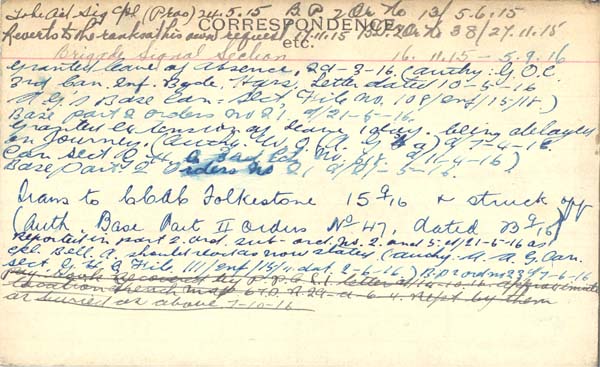 To be Act Sig Cpl (Prov) 24.5.15 B.P. 2 Or No 13/5.6.15
CORRESPONDENCE,
Reverts to the ranks at his own request 11.11.15 B.P. 2 Or No 38/27.11.15
etc.
Brigade Signal Section 16.11.15 – 5.9.16
Granted leave of absence, 29-3-16. (authy: G.O.C.
3rd Can. Inf. Bgde, Hqrs, Letter dated 10-5-16
A.G.'s Base Can. Sect, File No. 108/enf/15/18)
Base part 2 orders no 21 d/21-5-16.
Granted extension of leave 1 day. being delayed
on journey. (Authy: d/7-4-16.
Can Sect G.H.Q. d/11-4-16)
Base Part 2 Orders no 21 d/21-5-16.
Trans to CCAC Folkestone 15 9/16 & struck off
(Auth Base Part II Orders No 47, dated 23 9/16)
Reported in part 2. ord. sub-ord. Nos. 2. and 5. d/21-5-16 as
Cpl Bell. A. should read as now stated (authy: A.A.G. Can.
Sect. G.H.Q. File 111/enf/15/11. dat. 2-6-16.) B.P. 2 ord no 23 d/7-6-16.
letter d/14-10-16. approximate
location trench map Rept by them
as buried as above 7-10-16